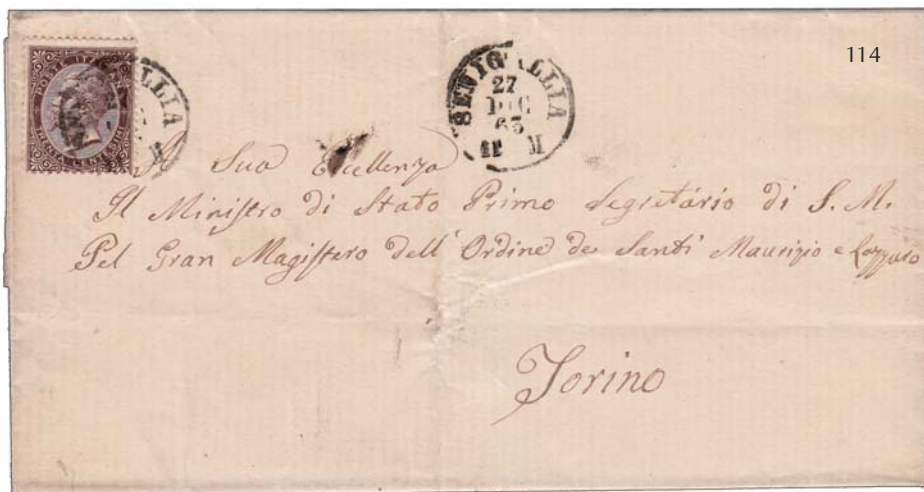 114
POSTE ITALIANE
TRENTA CENTESIMI
SENIGALLIA
27
DIC
65
11 M
A Sua Eccellenza
Il Ministro di Stato Primo Segretario di S. M.
Pel Gran Magistero dell' Ordine de Santi Maurizio e Lazzaro
Torino